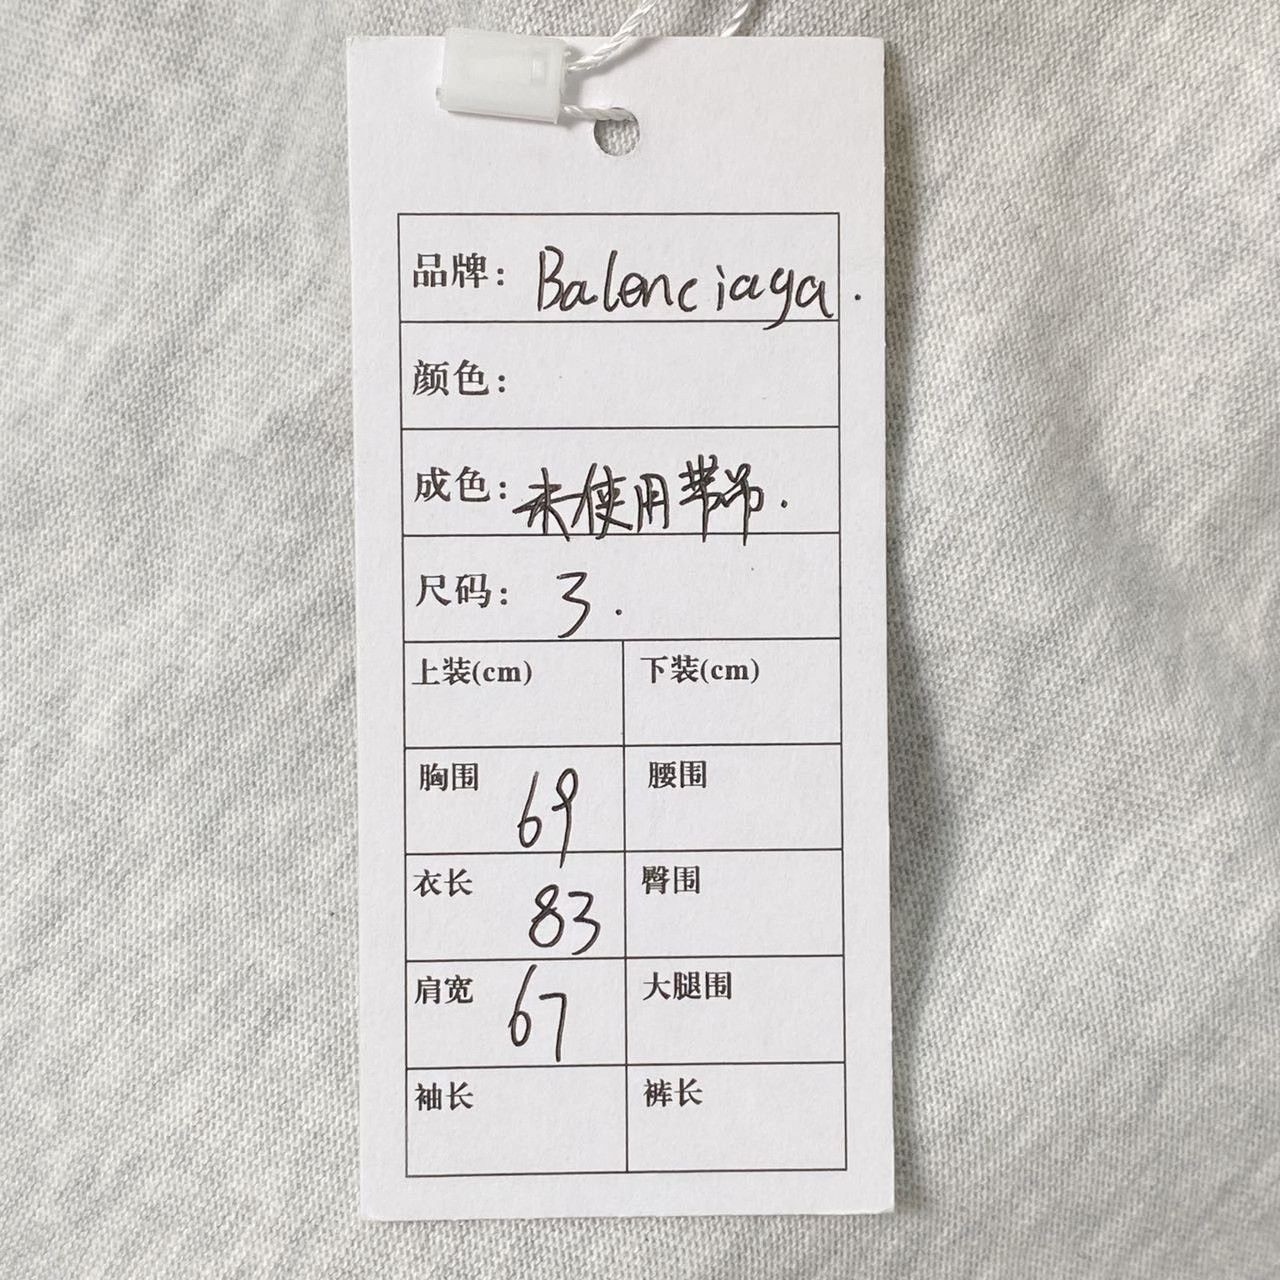 品牌: Balenciaga.
颜色:
成色: 未使用带吊.
尺码: 3.
上装(cm) 下装(cm)
胸围 69 腰围
衣长 83 臀围
肩宽 67 大腿围
袖长 裤长